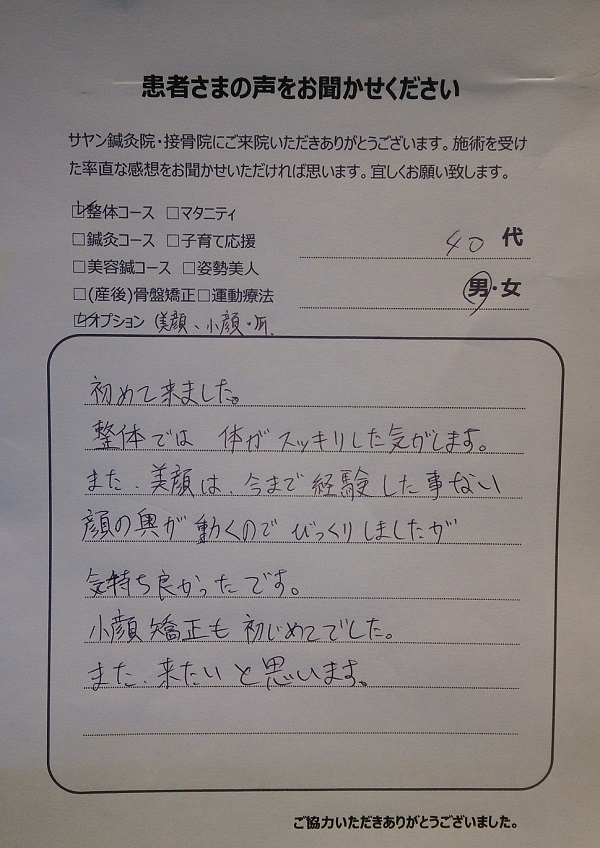 患者さまの声をお聞かせください
サヤン鍼灸院・接骨院にご来院いただきありがとうございます。施術を受け
た率直な感想をお聞かせいただければ思います。宜しくお願い致します。
☑整体コース □マタニティ
□鍼灸コース □子育て応援
40 代
□美容鍼コース □姿勢美人
□(産後)骨盤矯正□運動療法
男・女
☑オプション (美顔、小顔・
初めて来ました。
整体では 体がスッキリした気がします。
また、美顔は、今まで経験した事ない
顔の奥が動くのでびっくりしましたが
気持ち良かったです。
小顔矯正も初じめてでした。
また、来たいと思います。
ご協力いただきありがとうございました。